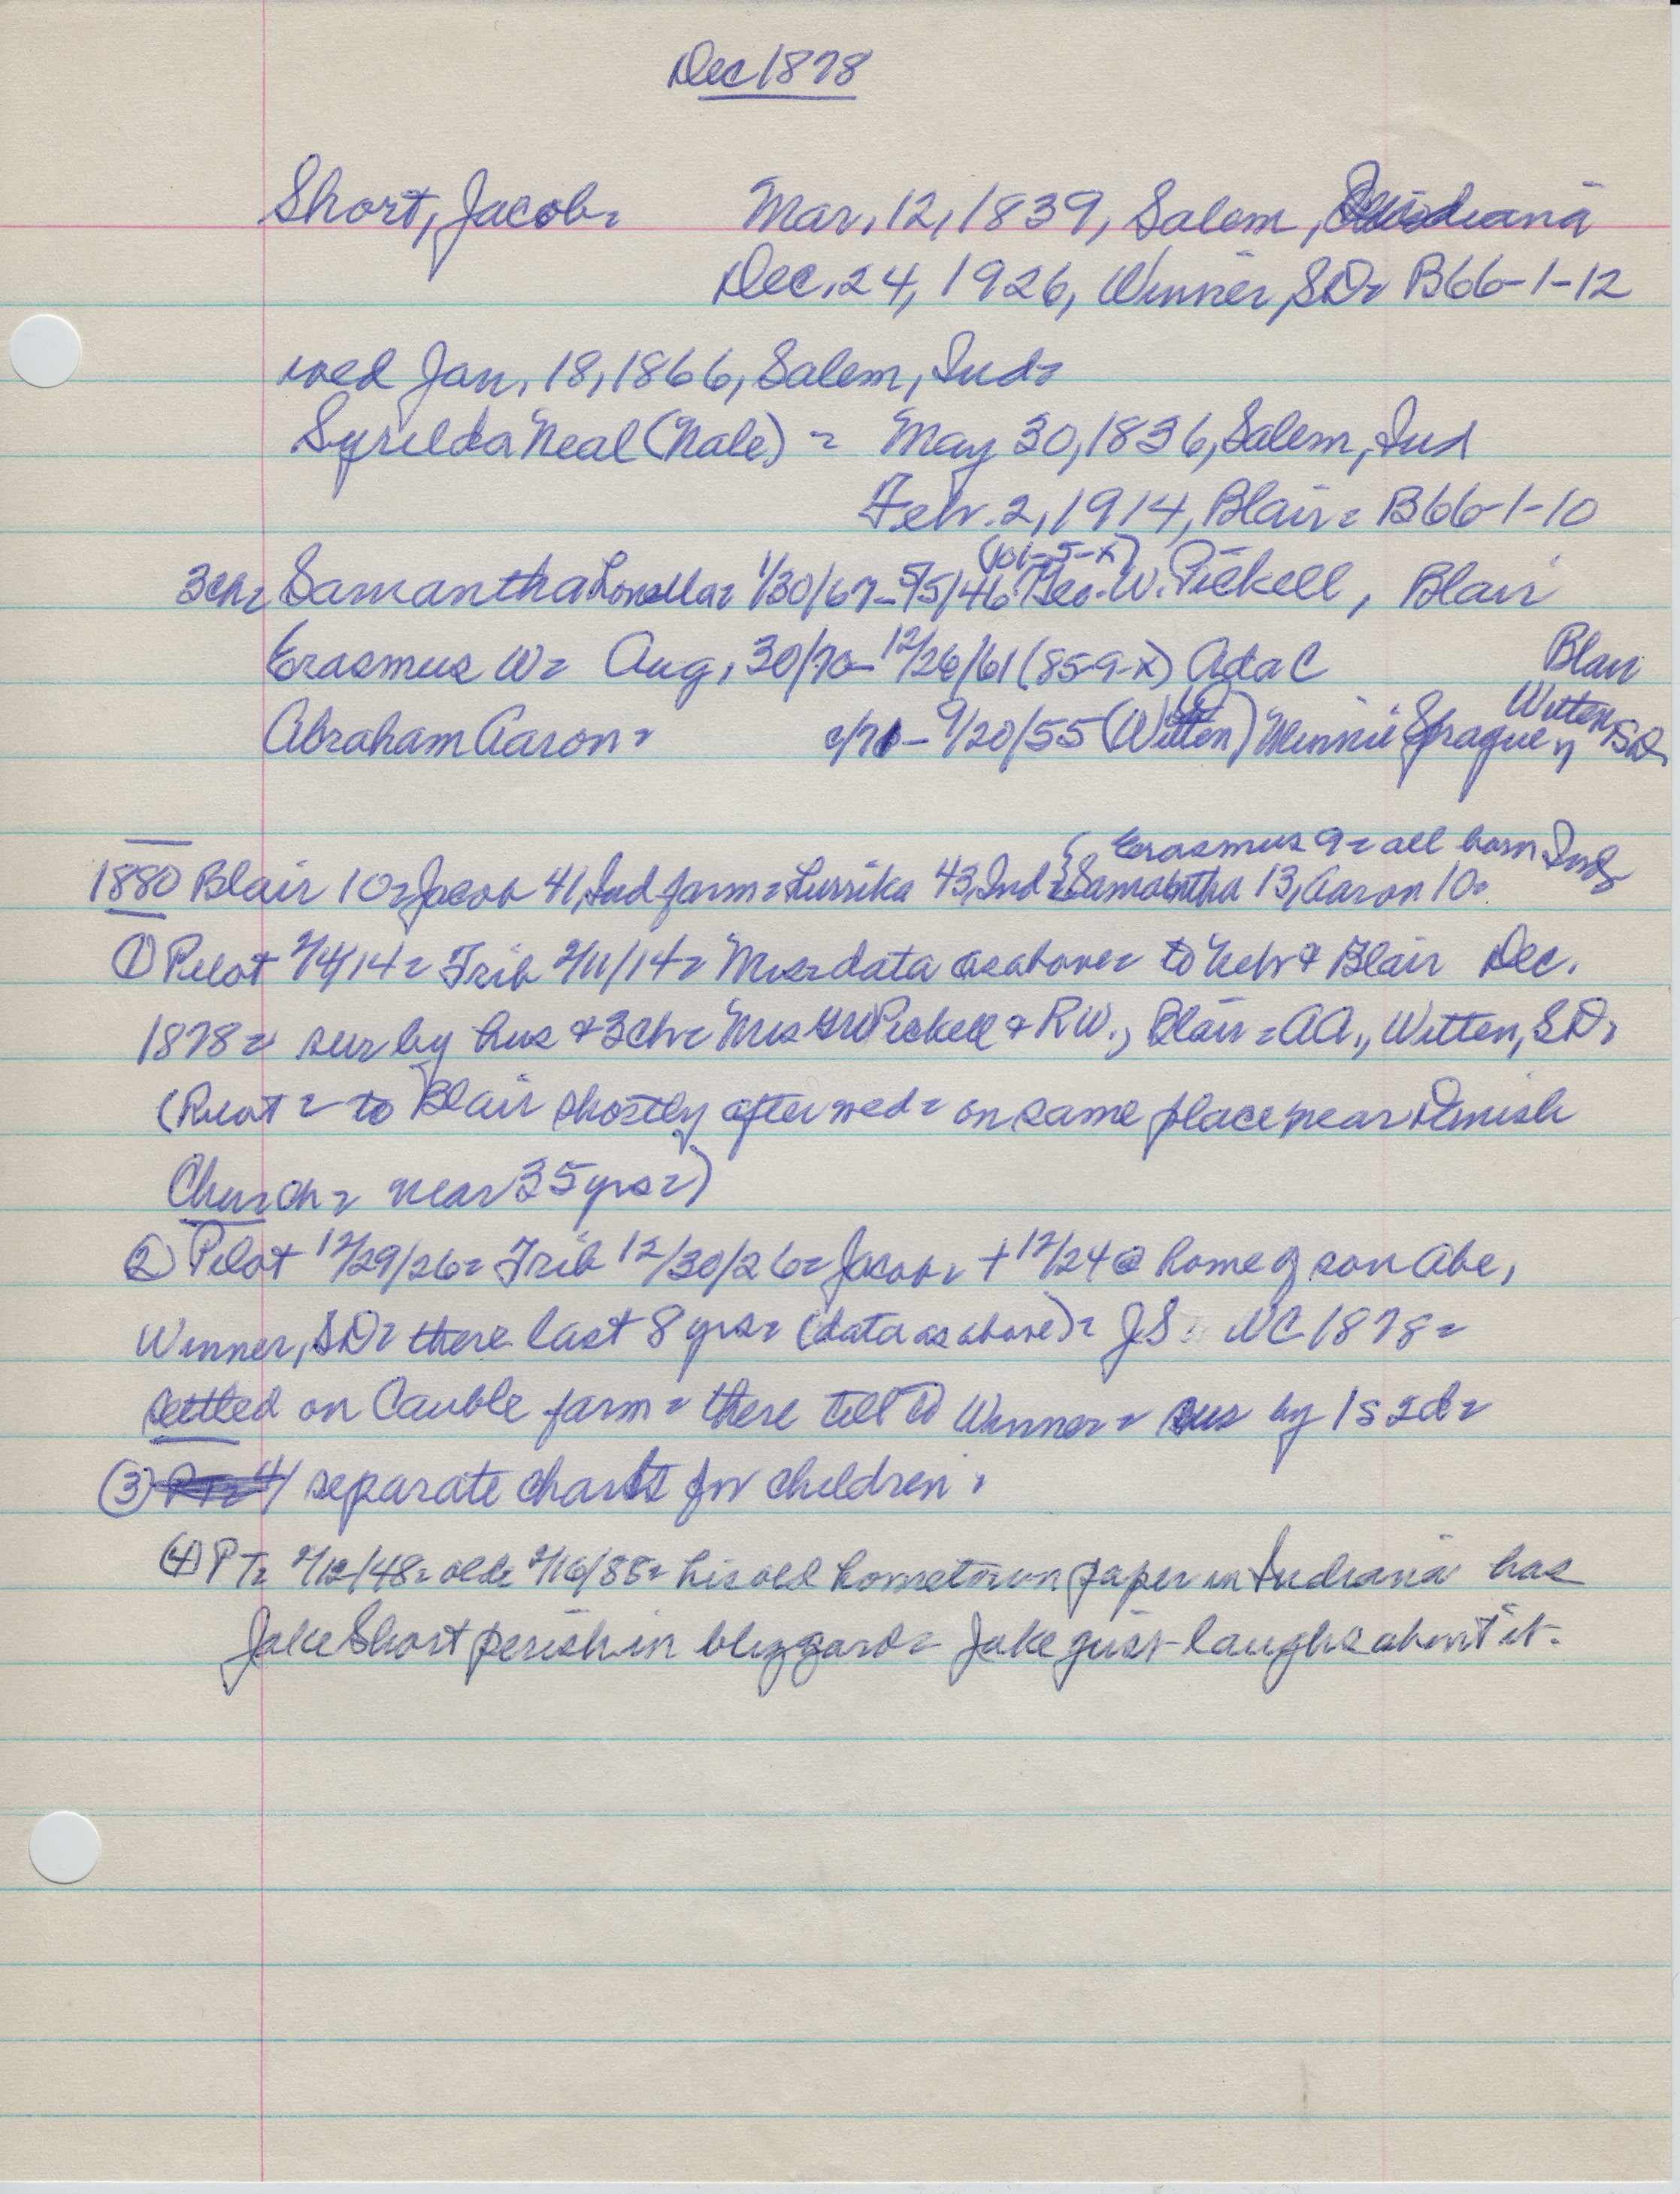 Dec 1878
Short, Jacob = Mar. 12, 1839, Salem, Indiana
Dec. 24, 1926, Winner, SD = B66-1-12
wed Jan. 18, 1866, Salem, Ind =
Syrelda Neal (Nale) = May 30, 1836, Salem, Ind
Feb. 2, 1914, Blair = B66-1-10
(101-5-X)
3ch = Samantha = 1/30/67 - 5/5/46 = Geo. W. Pickell, Blair
Erasmus W = Aug, 30/70 - 12/26/61 (859-X) Ada C Blair
Abraham Aaron = c/71 - 9/20/55 (Witten) Minnie Sprague, Witten, SD
Erasmus 9 = all born Ind
1880 Blair 10 = Jacob 41, Ind farm = 43, Ind = Samantha 13, Aaron 10 =
① Pilot 2/4/14 = Trib 2/11/14 = Mrs = data as above = to Nebr & Blair Dec.
1878 = sur by hus & 3ch = Mrs GW Pickell & RW., Blair = AA., Witten, SD.
(Pilot = to Blair shortly after wed = on same place near Danish
Church = near 35 yrs =)
② Pilot 12/29/26 = Trib 12/30/26 = Jacob = + 12/24 @ home of son Abe,
Winner, SD = there last 8 yrs = (data as above) = JS = WC 1878 =
settled on Cauble farm = there till to Winner = sur by 1s 2d =
③ separate charts for children.
④ PT = 2/12/48 = old = 2/16/88 = his old hometown paper in Indiana has
Jake Short perish in blizzard = Jake just laughs about it.